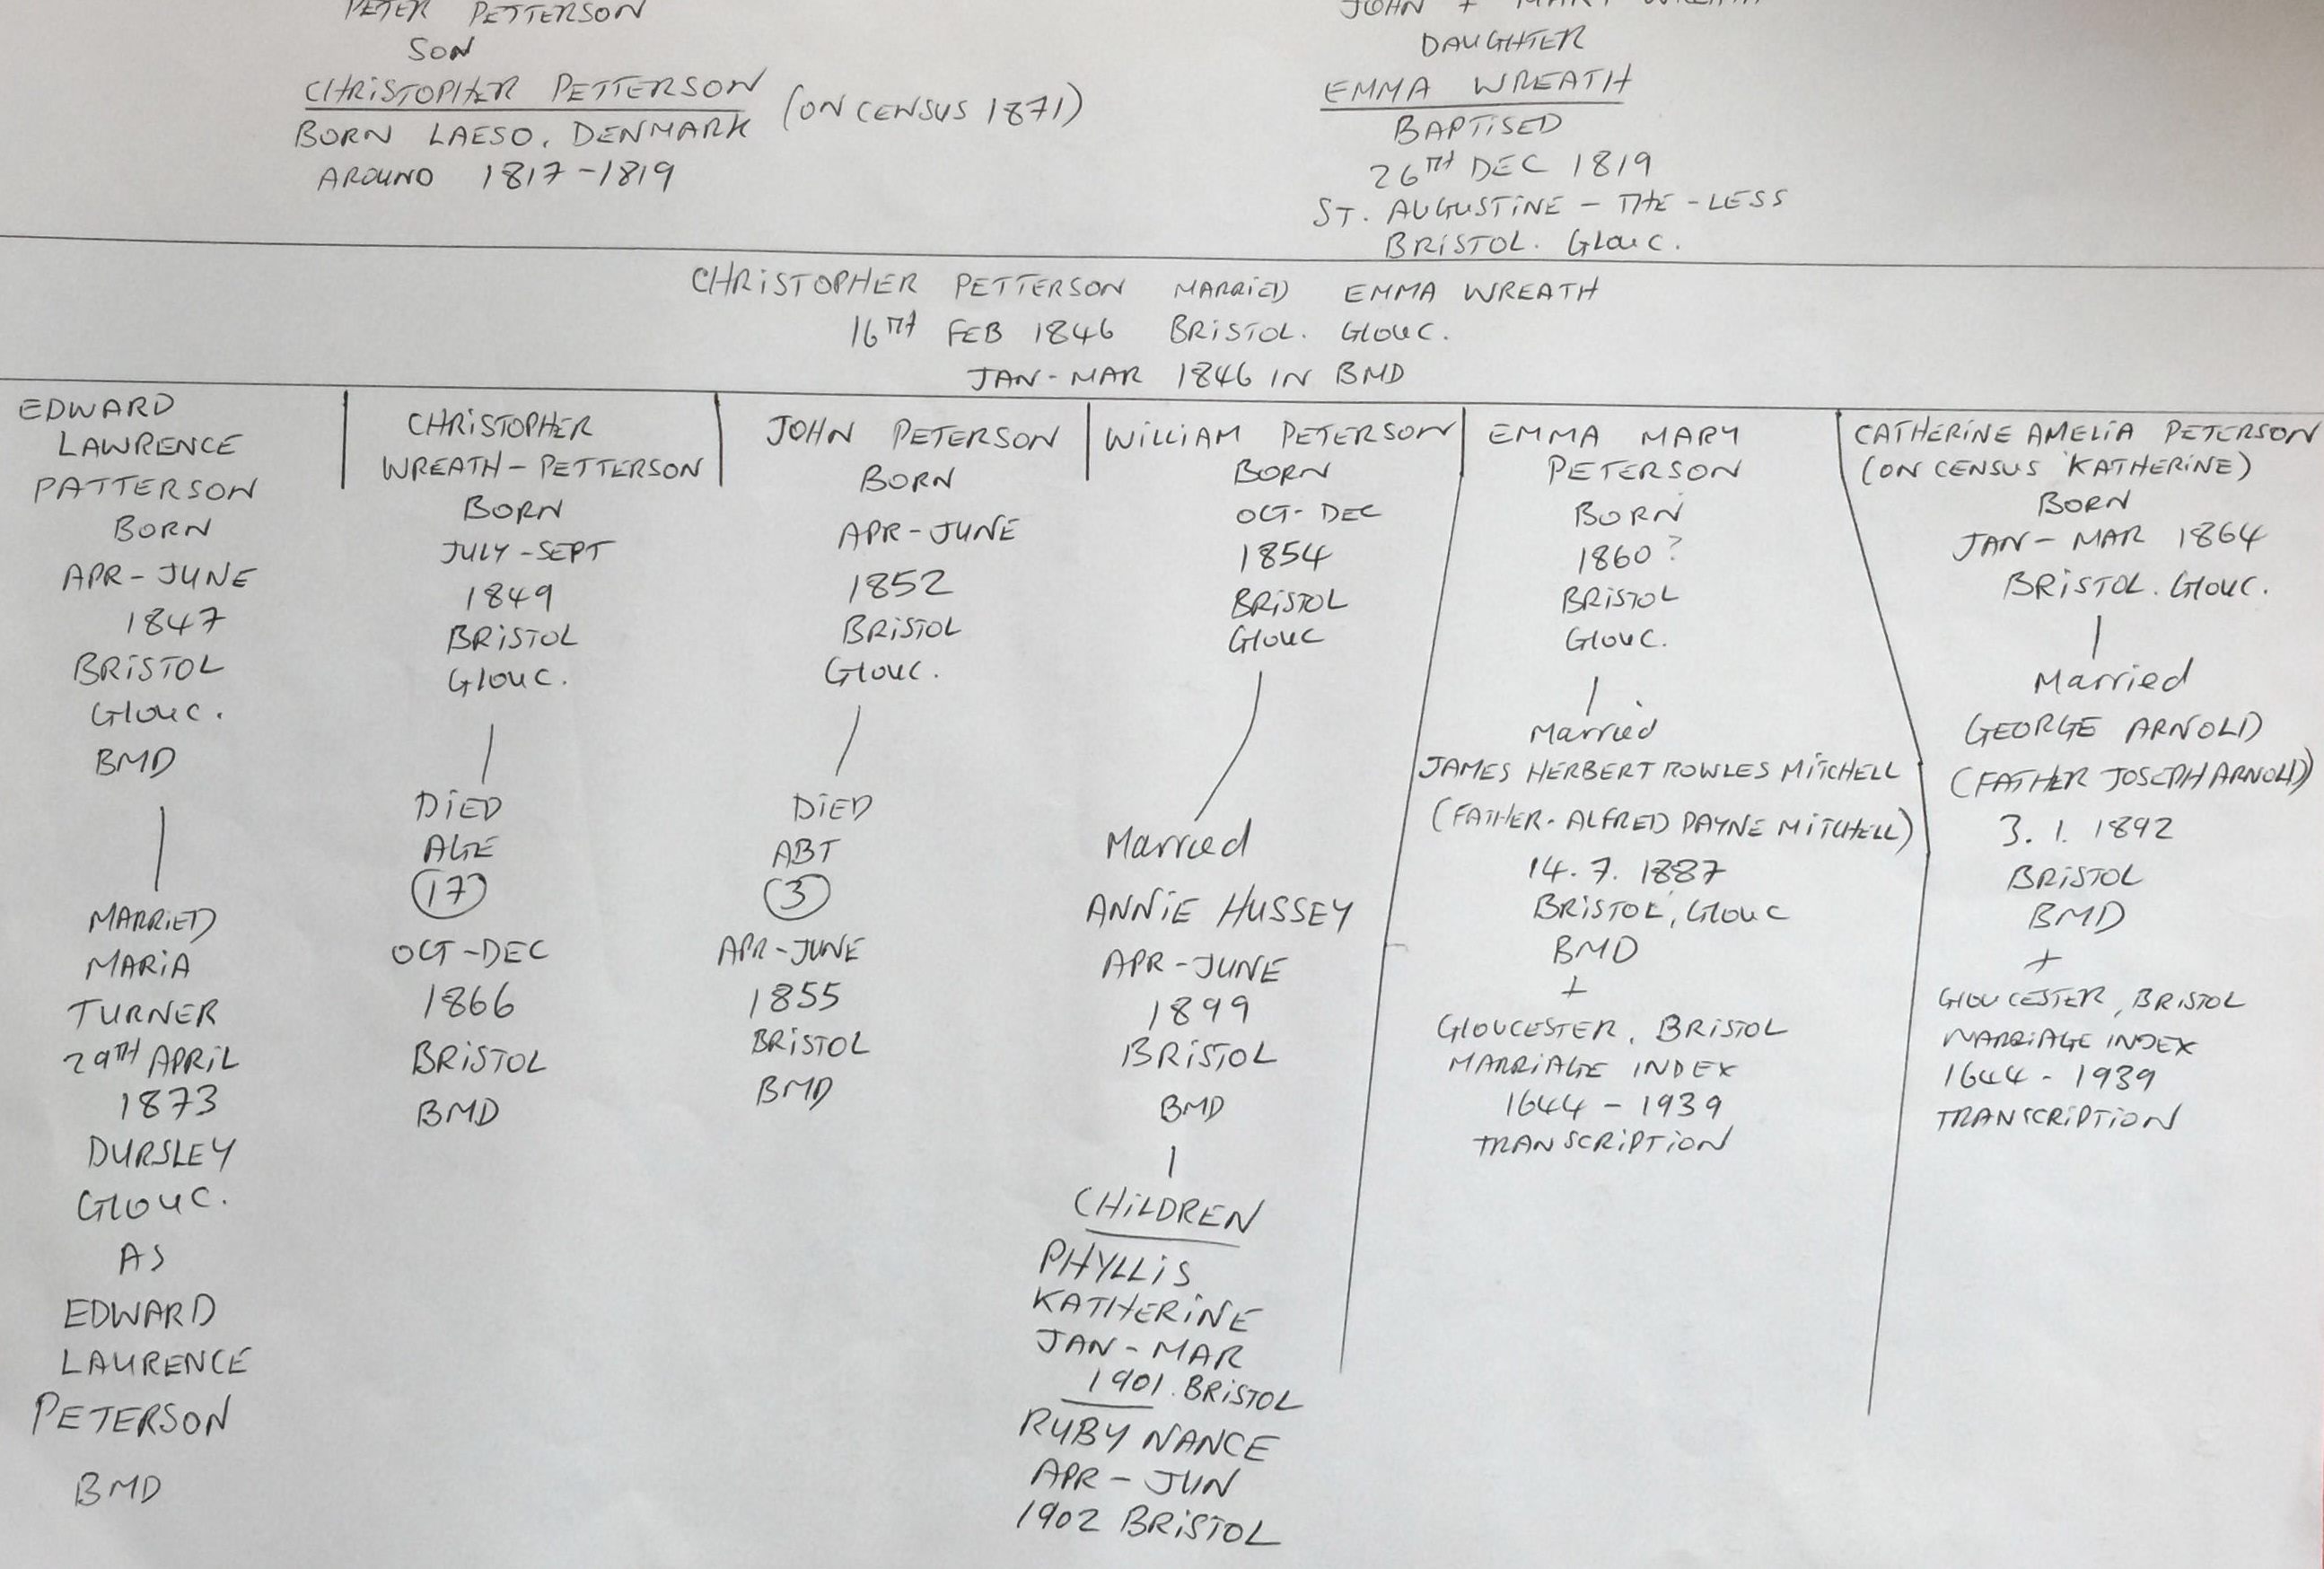 PETER PETTERSON
SON
CHRISTOPHER PETTERSON (ON CENSUS 1871)
BORN LAESO, DENMARK
AROUND 1817-1819
JOHN + MARY WREATH
DAUGHTER
EMMA WREATH
BAPTISED
26TH DEC 1819
ST. AUGUSTINE - THE - LESS
BRISTOL. Glouc.
CHRISTOPHER PETTERSON MARRIED EMMA WREATH
16TH FEB 1846 BRISTOL. Glouc.
JAN-MAR 1846 IN BMD
EDWARD
LAWRENCE
PATTERSON
BORN
APR-JUNE
1847
BRISTOL
Glouc.
BMD
MARRIED
MARIA
TURNER
29TH APRIL
1873
DURSLEY
Glouc.
AS
EDWARD
LAURENCE
PETERSON
BMD
CHRISTOPHER
WREATH-PETTERSON
BORN
JULY-SEPT
1849
BRISTOL
Glouc.
DIED
AGE
17
OCT-DEC
1866
BRISTOL
BMD
JOHN PETERSON
BORN
APR-JUNE
1852
BRISTOL
Glouc.
DIED
ABT
3
APR-JUNE
1855
BRISTOL
BMD
WILLIAM PETERSON
BORN
OCT-DEC
1854
BRISTOL
Glouc
Married
ANNIE HUSSEY
APR-JUNE
1899
BRISTOL
BMD
CHILDREN
PHYLLIS
KATHERINE
JAN-MAR
1901. BRISTOL
RUBY NANCE
APR-JUN
1902 BRISTOL
EMMA MARY
PETERSON
BORN
1860?
BRISTOL
Glouc.
Married
JAMES HERBERT ROWLES MITCHELL
(FATHER. ALFRED PAYNE MITCHELL)
14.7.1887
BRISTOL, Glouc
BMD
+
GLOUCESTER, BRISTOL
MARRIAGE INDEX
1644-1939
TRANSCRIPTION
CATHERINE AMELIA PETERSON
(ON CENSUS 'KATHERINE)
BORN
JAN-MAR 1864
BRISTOL. Glouc.
Married
GEORGE ARNOLD
(FATHER JOSEPH ARNOLD)
3.1.1892
BRISTOL
BMD
+
GLOUCESTER, BRISTOL
MARRIAGE INDEX
1644-1939
TRANSCRIPTION